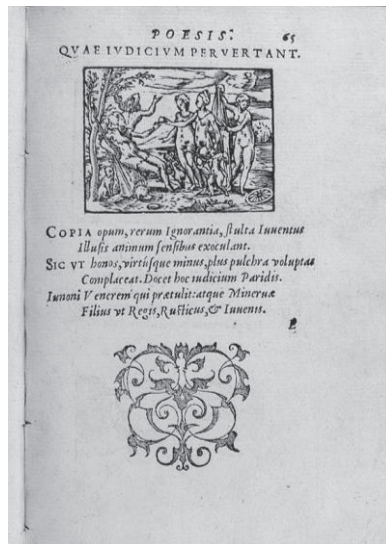 POESIS. 65
QVAE IVDICIVM PERVERTANT.
COPIA opum, rerum Ignorantia, stulta Iuuentus
Illusis animum sensibus exoculant.
SIC VT honos, virtusque minus, plus pulchra voluptas
Complaceat. Docet hoc iudicium Paridis.
Iunoni Venerem qui prætulit: atque Mineruæ
Filius vt Regis, Rusticus, & Iuuenis.